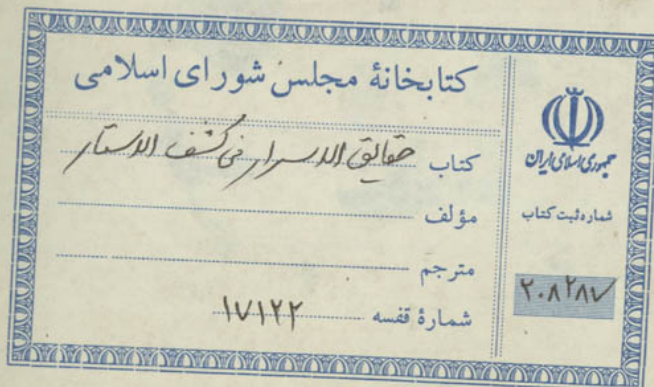 کتابخانهٔ مجلس شورای اسلامی
کتاب حقایق الاسرار فی کشف الاستار
مؤلف
مترجم
شمارهٔ قفسه ۱۷۱۲۲
جمهوری اسلامی ایران
شماره ثبت کتاب
۲۰۸۲۸۷